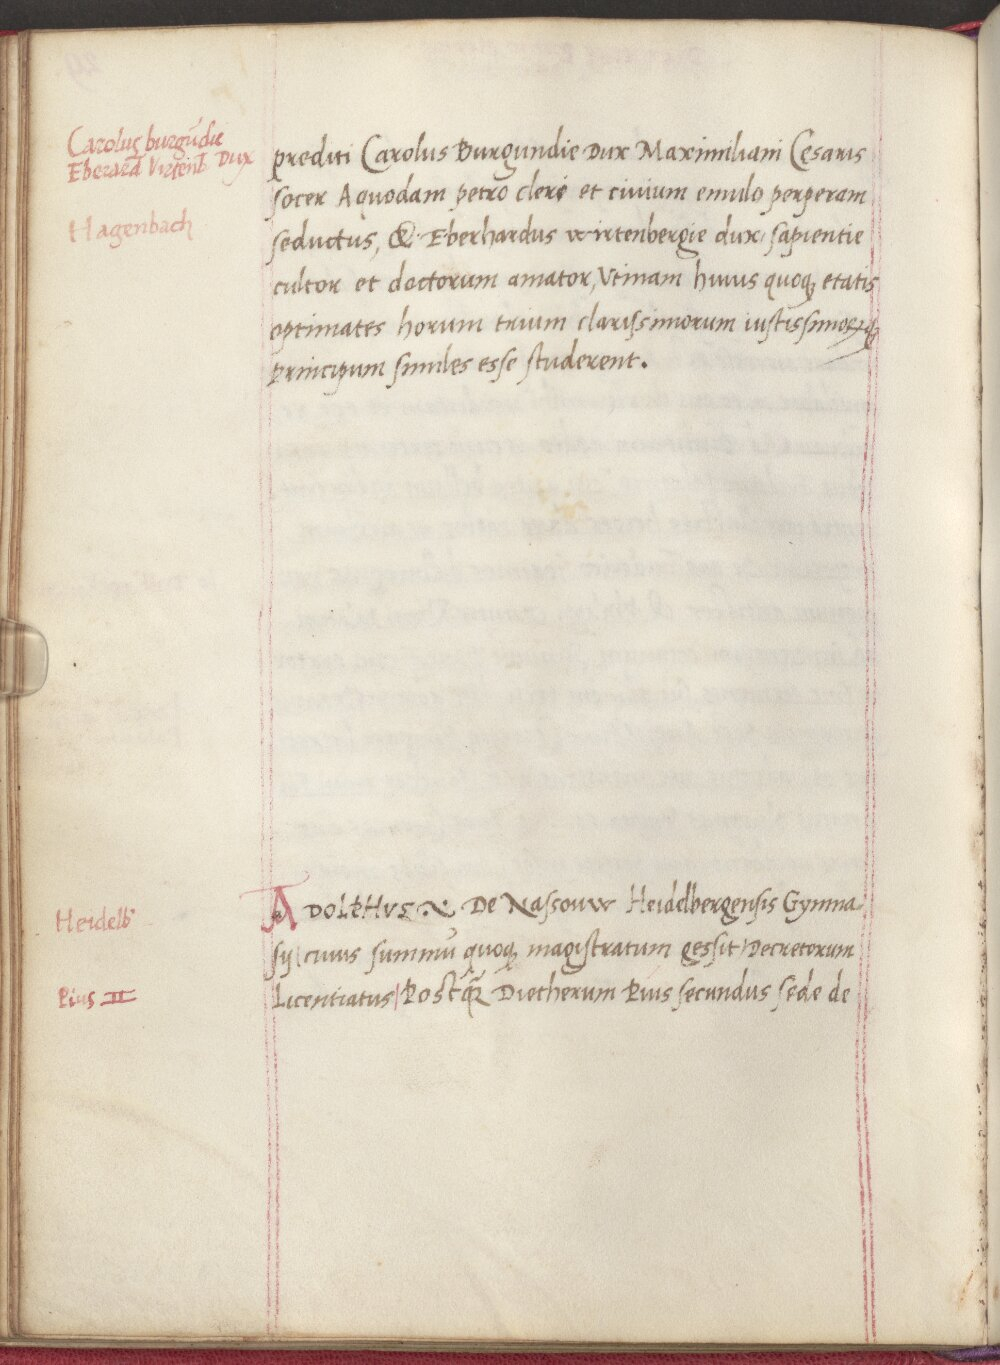 Carolus burgūdie
Eberard Virtenb Dux
Hagenbach
prediti Carolus Burgundie Dux Maximiliani Cęsaris
socer A quodam petro cleri et ciuium emulo perperam
seductus, & Eberhardus wirtenbergie dux, sapientie
cultor et doctorum amator, Vtinam huius quoq; etatis
optimates horum trium clarissimorum iustissimorq;
principum similes esse studerent.
ADOLPHVS De Nassouw Heidelbergensis Gymna-
Heidelb
sij cuius summū quoq; magistratum gessit Decretorum
Pius II
Licentiatus, Postq̄ Dietherum Pius secundus sede de